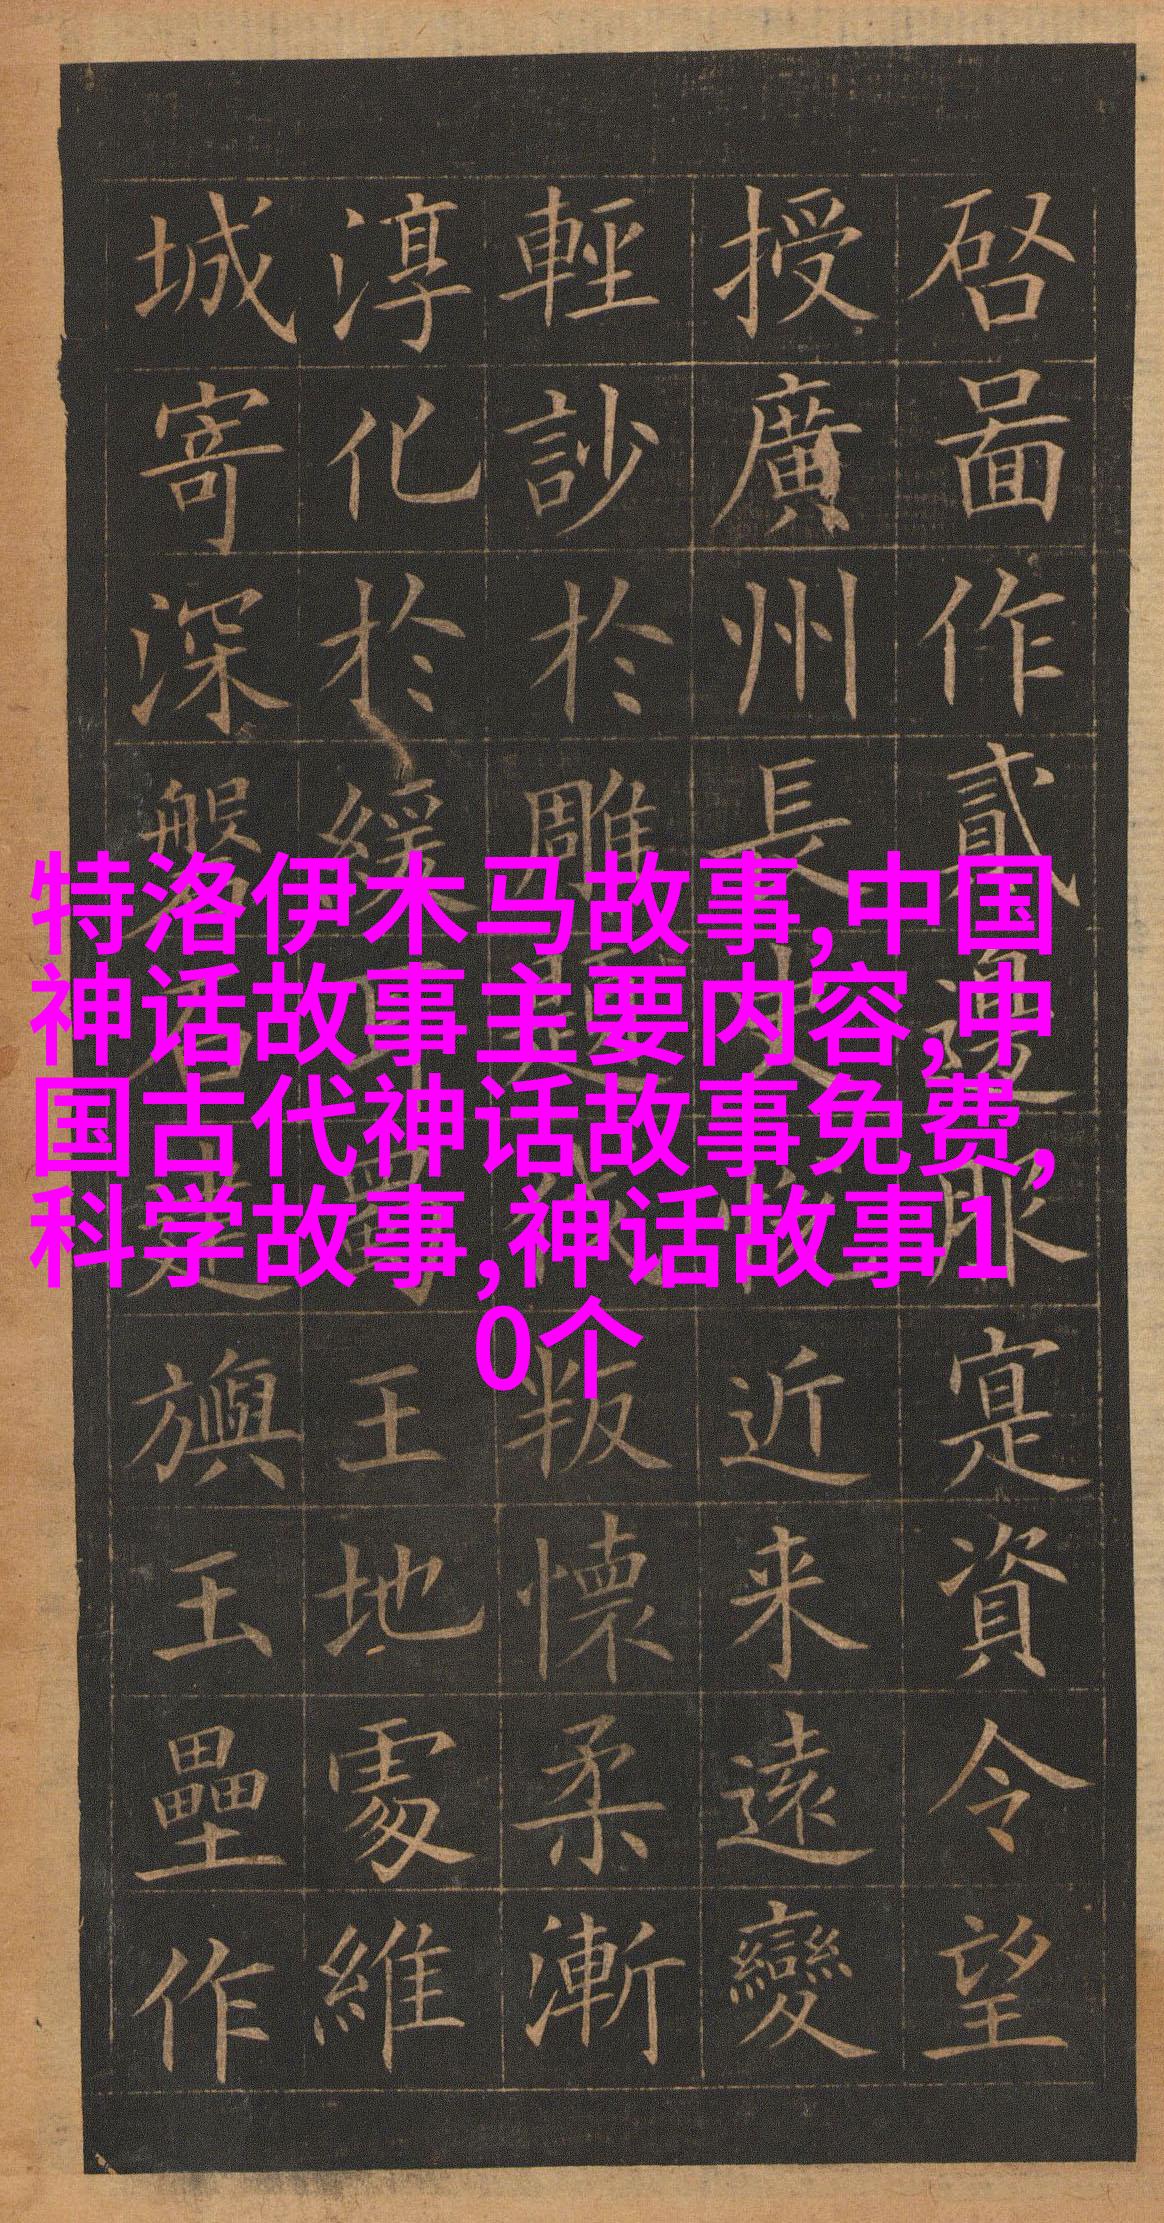 特洛伊木马故事,中国
神话故事主要内容,中
国古代神话故事免费,
科学故事,神话故事1
0个
啓啚作貳邊服寔資令望
授廣州長史近来遠變
輕訬於雕題伐叛懷柔漸
淳化於緩耳蜀王地處維
城寄深磐石建旟玉壘作